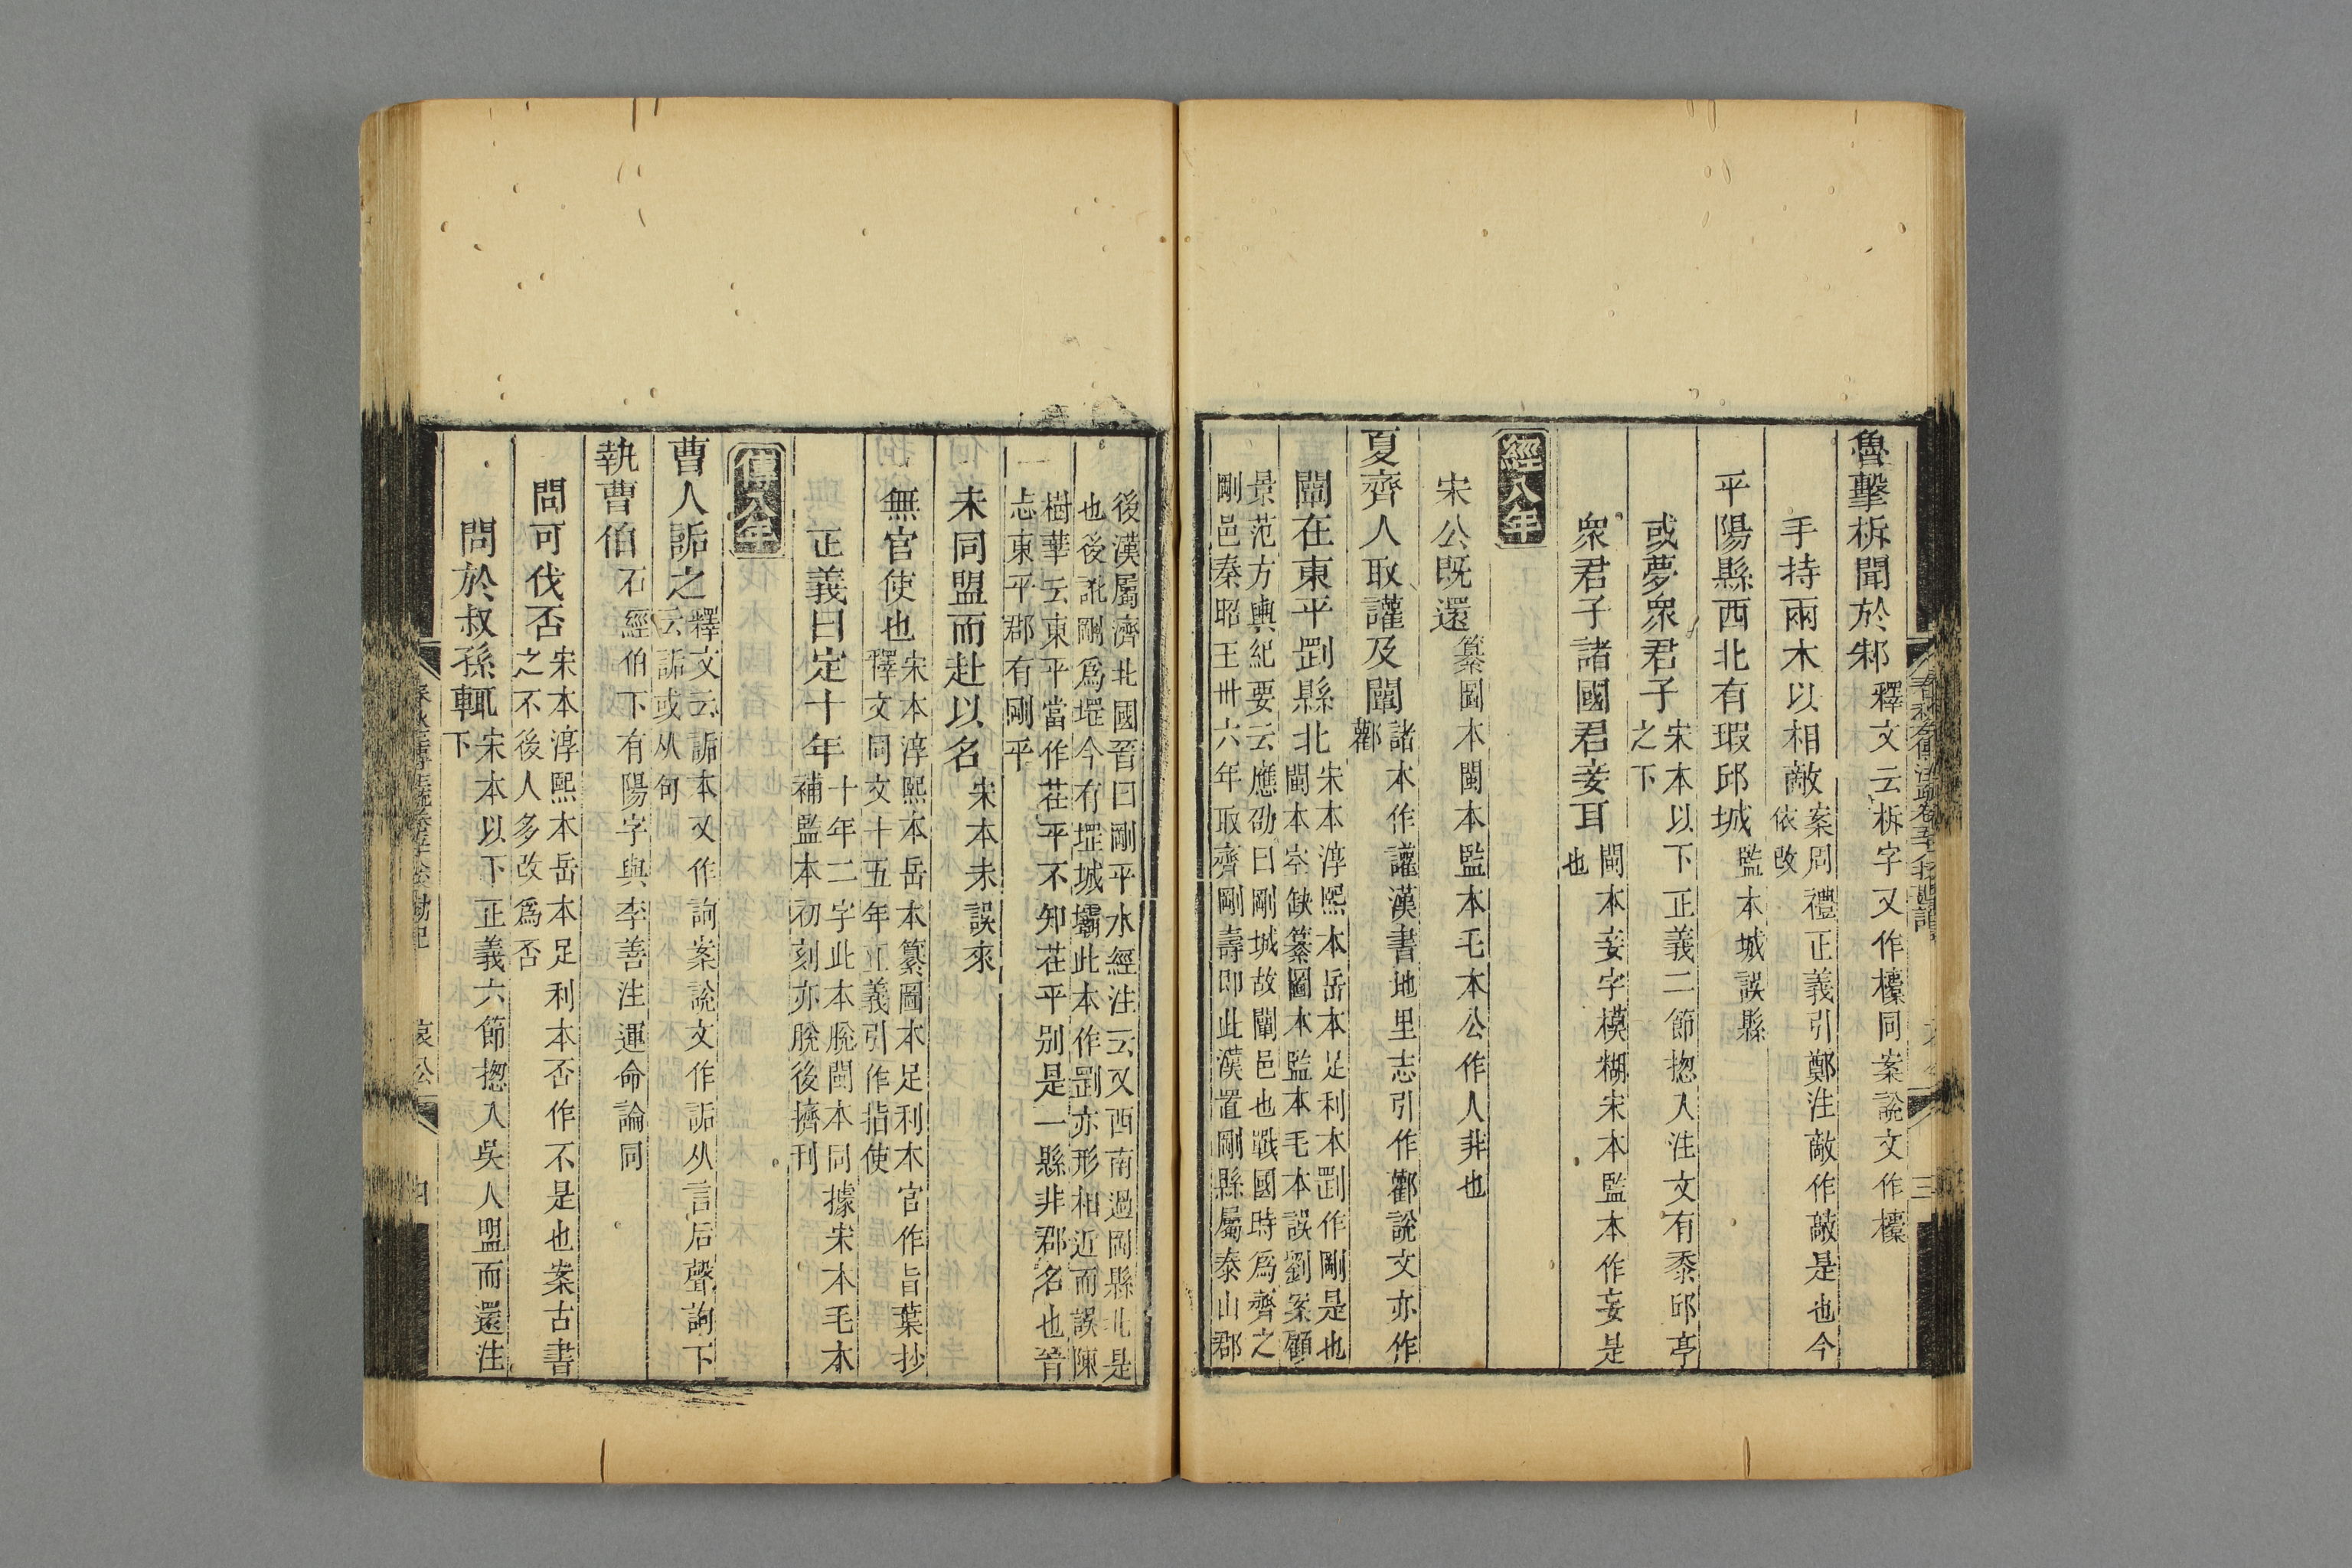 魯擊柝聞於邾釋文云柝字又作𣟄同案說文作𣟄
手持兩木以相敵案周禮正義引鄭注敵作敲是也今
依改
平陽縣西北有瑕邱城監本城誤縣
或夢衆君子宋本以下正義二節揔入注文有黍邱亭
之下
衆君子諸國君妾耳閩本妾字模糊宋本監本作妄是
也
經八年
宋公既還纂圖本閩本監本毛本公作人非也
夏齊人取讙及闡諸本作讙漢書地里志引作酄說文亦作
酄
闡在東平劉縣北宋本淳熙本岳本足利本劉作剛是也
閩本空缺纂圖本監本毛本誤劉案顧
景范方輿紀要云應劭曰剛城故闡邑也戰國時爲齊之
剛邑秦昭王卅六年取齊剛壽即此漢置剛縣屬泰山郡
後漢屬濟北國晉曰剛平水經注云又西南過岡縣北是
也後訛剛爲堽今有堽城壩此本作劉亦形相近而誤陳
樹華云東平當作茌平不知茌平别是一縣非郡名也晉
志東平郡有剛平
未同盟而赴以名宋本未誤來
無官使也宋本淳熙本岳本纂圖本足利本官作旨葉抄
釋文同文十五年正義引作指使
正義曰定十年十年二字此本脫閩本同據宋本毛本
補監本初刻亦脫後擠刊
傳八年
曹人詬之釋文云詬本又作訽案說文作詬从言后聲訽下
云詬或从句
執曹伯石經伯下有陽字與李善注運命論同
問可伐否宋本淳熙本岳本足利本否作不是也案古書
之不後人多改爲否
問於叔孫輒宋本以下正義六節揔入吳人盟而還注
下